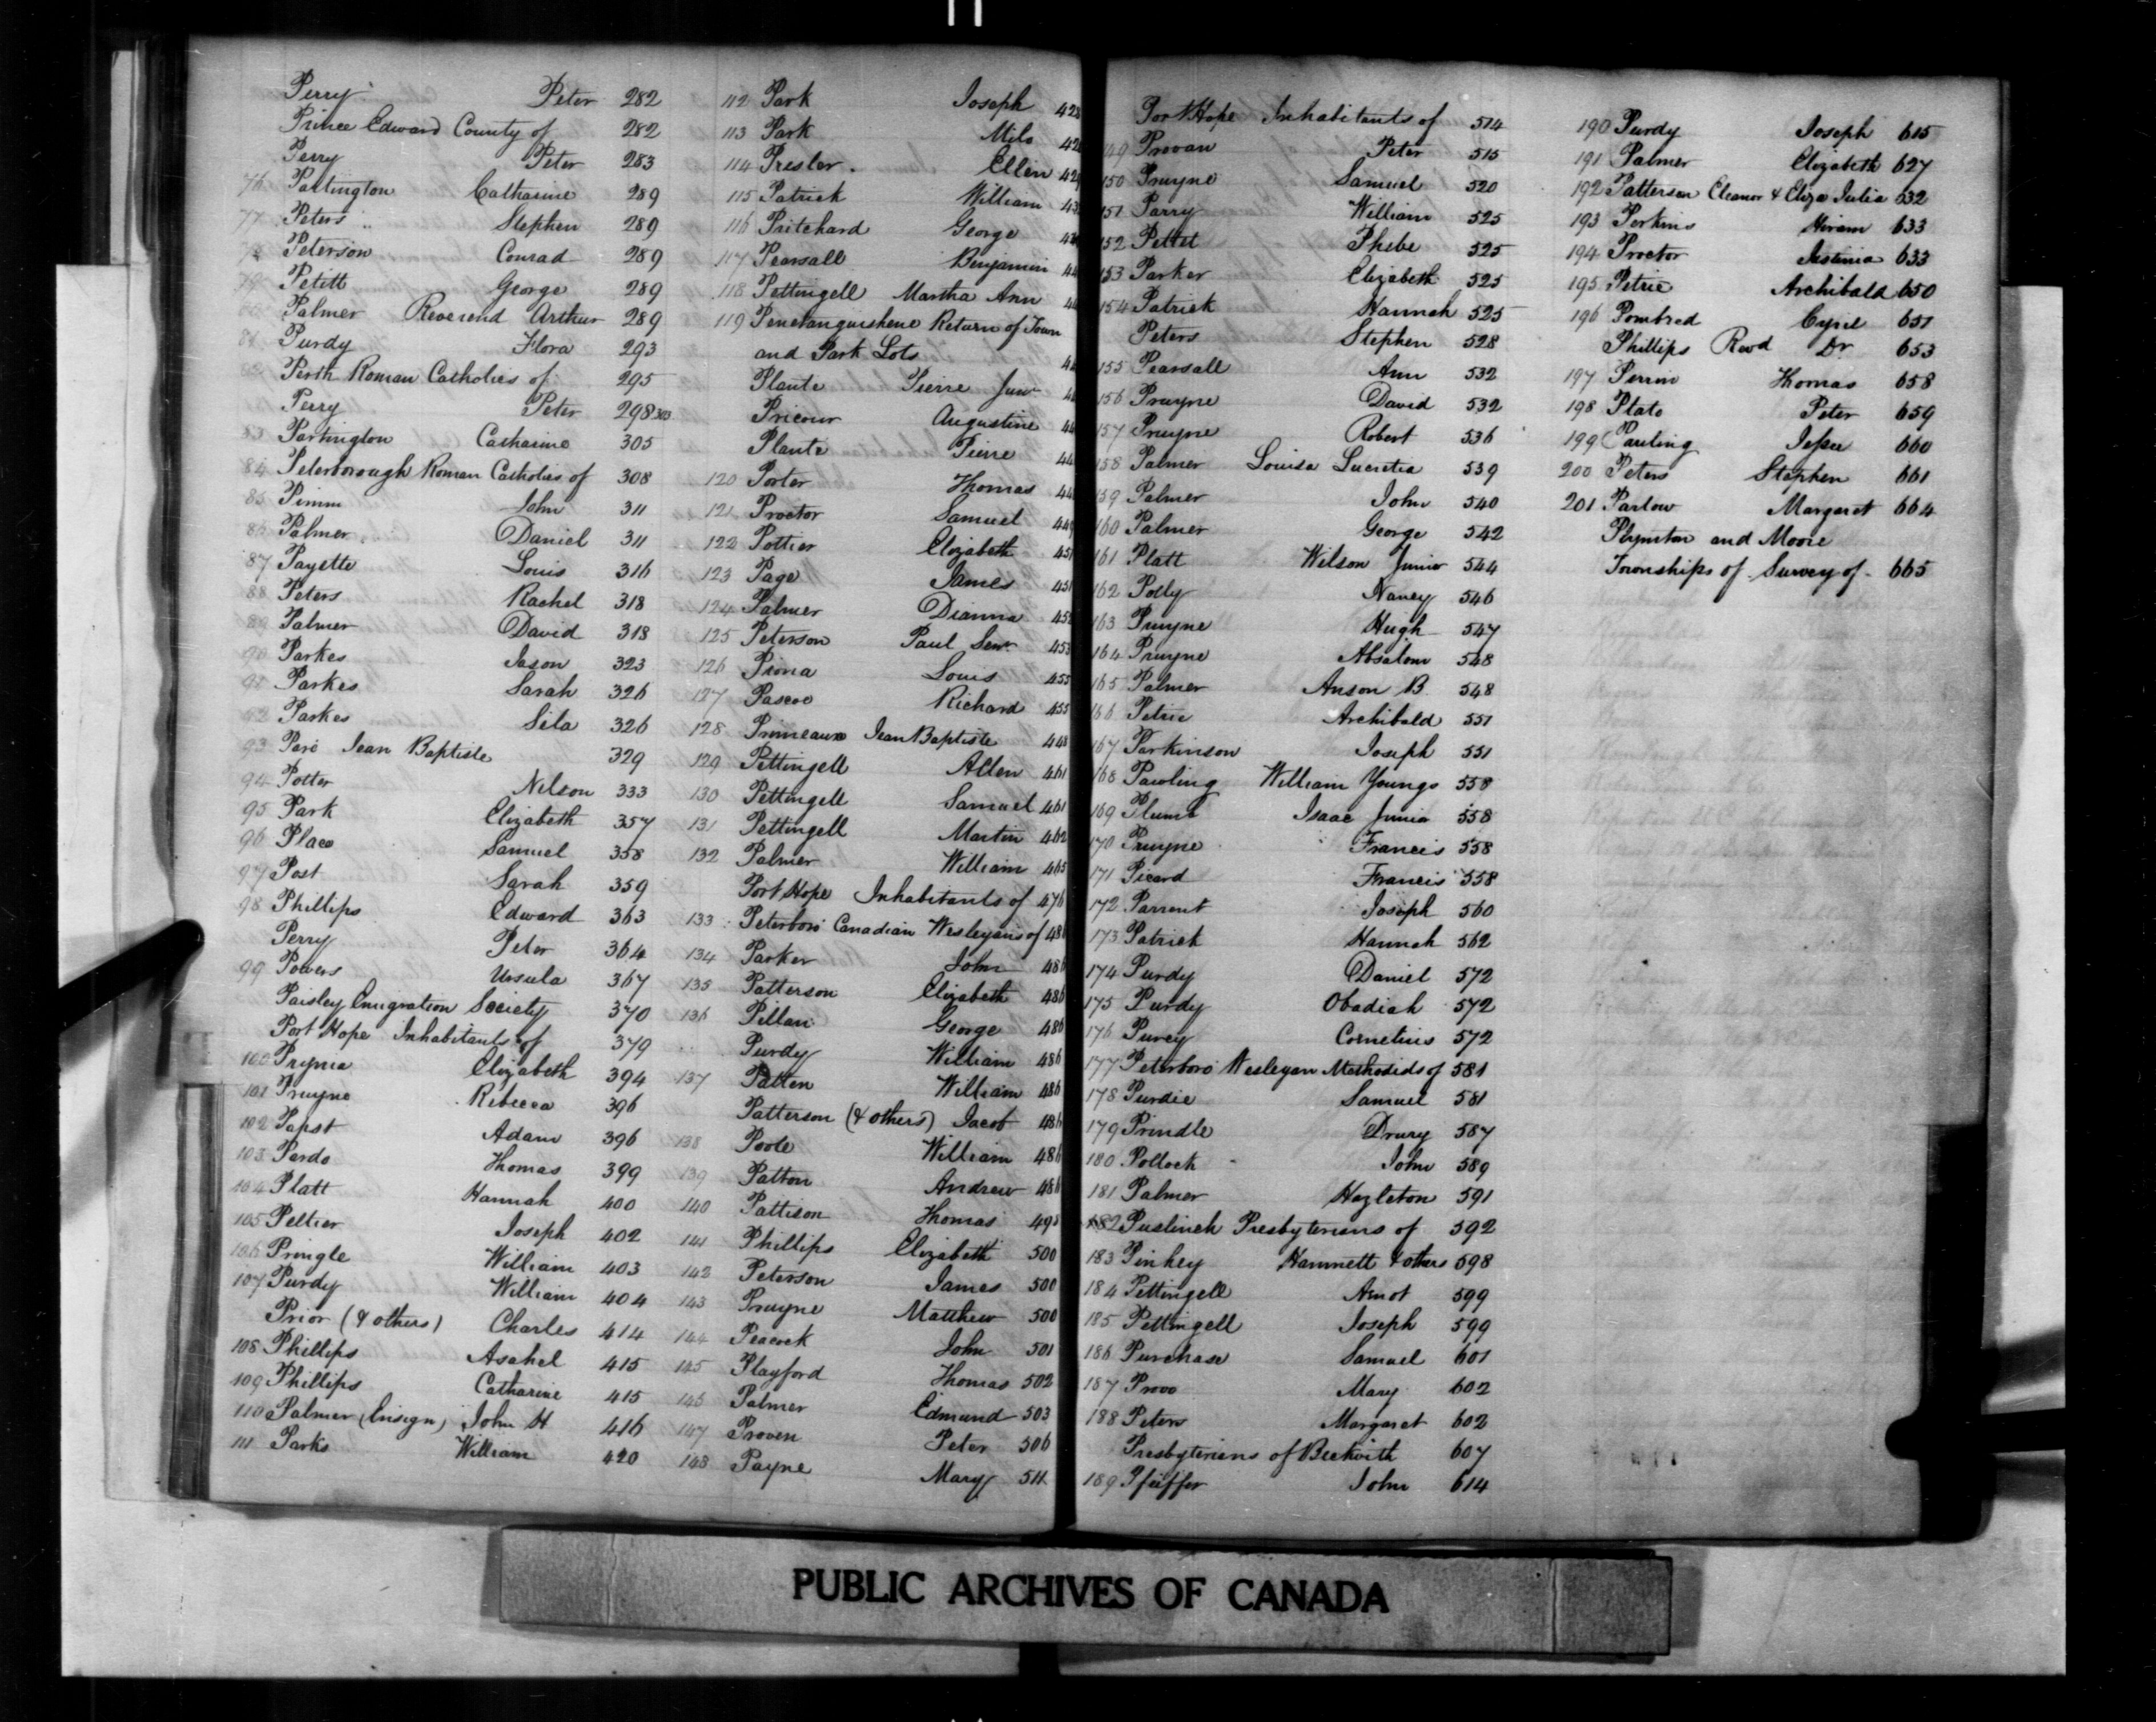 Perry Peter 282
Prince Edward County of 282
Perry Peter 283
76 Pallington Catharine 289
77 Peters Stephen 289
78 Peterson Conrad 289
79 Petitt George 289
80 Palmer Reverend Arthur 289
81 Purdy Flora 293
82 Perth Roman Catholics of 295
Perry Peter 298 303
83 Partington Catharine 305
84 Peterborough Roman Catholics of 308
85 Pimm John 311
86 Palmer Daniel 311
87 Payette Louis 316
88 Peters Rachel 318
89 Palmer David 318
90 Parkes Jason 323
91 Parkes Sarah 326
92 Parkes Sila 326
93 Paré Jean Baptiste 329
94 Potter Nelson 333
95 Park Elizabeth 357
96 Place Samuel 358
97 Post Sarah 359
98 Phillips Edward 363
Perry Peter 364
99 Powers Ursula 367
Paisley Emigration Society 370
Port Hope Inhabitants of 379
100 Elizabeth 394
101 Pruyne Rebecca 396
102 Papst Adam 396
103 Pardo Thomas 399
104 Platt Hannah 400
105 Peltier Joseph 402
106 Pringle William 403
107 Purdy William 404
Prior (& others) Charles 414
108 Phillips Asahel 415
109 Phillips Catharine 415
110 Palmer (Ensign) John H 416
111 Parks William 420
112 Park Joseph 428
113 Park Milo
114 Presler Ellen
115 Patrick William
116 Pritchard George
117 Pearsall Benjamin
118 Pettingell Martha Ann
119 Penetanguishene Return of Town
and Park Lots
Plante Pierre Junr
Pricour Augustine
Plante Pierre
120 Porter Thomas
121 Proctor Samuel 449
122 Pottier Elizabeth 451
123 Page James 451
124 Palmer Dianna 452
125 Peterson Paul Senr 453
126 Piona Louis 455
127 Pascoe Richard 455
128 Primeaux Jean Baptiste
129 Pettingell Allen 461
130 Pettingell Samuel 461
131 Pettingell Martin 462
132 Palmer William 465
Port Hope Inhabitants of 476
133 Peterboro Canadian Wesleyans of 486
134 Parker John 486
135 Patterson Elizabeth 486
136 Pillan George 486
Purdy William 486
137 Patten William 486
Patterson (& others) Jacob 486
138 Poole William 486
139 Patton Andrew 486
140 Pattison Thomas 498
141 Phillips Elizabeth 500
142 Peterson James 500
143 Pruyne Matthew 500
144 Peacock John 501
145 Playford Thomas 502
146 Palmer Edmund 503
147 Proven Peter 506
148 Payne Mary 511
Port Hope Inhabitants of 514
149 Provan Peter 515
150 Pruyne Samuel 520
151 Parry William 525
152 Pettet Phebe 525
153 Parker Elizabeth 525
154 Patrick Hannah 525
Peters Stephen 528
155 Pearsall Ann 532
156 Pruyne David 532
157 Pruyne Robert 536
158 Palmer Louisa Lucretia 539
159 Palmer John 540
160 Palmer George 542
161 Platt Wilson Junior 544
162 Polly Nancy 546
163 Pruyne Hugh 547
164 Pruyne Absalom 548
165 Palmer Anson B. 548
166 Petrie Archibald 551
167 Parkinson Joseph 551
168 Pawling William Youngs 558
169 Plumb Isaac Junior 558
170 Pruyne Francis 558
171 Picard Francis 558
172 Parrent Joseph 560
173 Patrick Hannah 562
174 Purdy Daniel 572
175 Purdy Obadiah 572
176 Purcy Cornelius 572
177 Peterboro Wesleyan Methodists of 581
178 Purdie Samuel 581
179 Prindle Drury 587
180 Pollock John 589
181 Palmer Hazleton 591
182 Puslinch Presbyterians of 592
183 Pinhey Hamnett & others 598
184 Pettingell Amot 599
185 Pettingell Joseph 599
186 Purchase Samuel 601
187 Provo Mary 602
188 Peters Margaret 602
Presbyterians of Beckwith 607
189 Pfeiffer John 614
190 Purdy Joseph 615
191 Palmer Elizabeth 627
192 Patterson Eleanor & Eliza Julia 632
193 Perkins Hiram 633
194 Proctor Justinia 633
195 Petrie Archibald 650
196 Pombred Cyril 651
Phillips Revd Dr 653
197 Perrin Thomas 658
198 Plato Peter 659
199 Pauling Jesse 660
200 Peters Stephen 661
201 Parlow Margaret 664
Plympton and Moore
Townships of Survey of 665
PUBLIC ARCHIVES OF CANADA